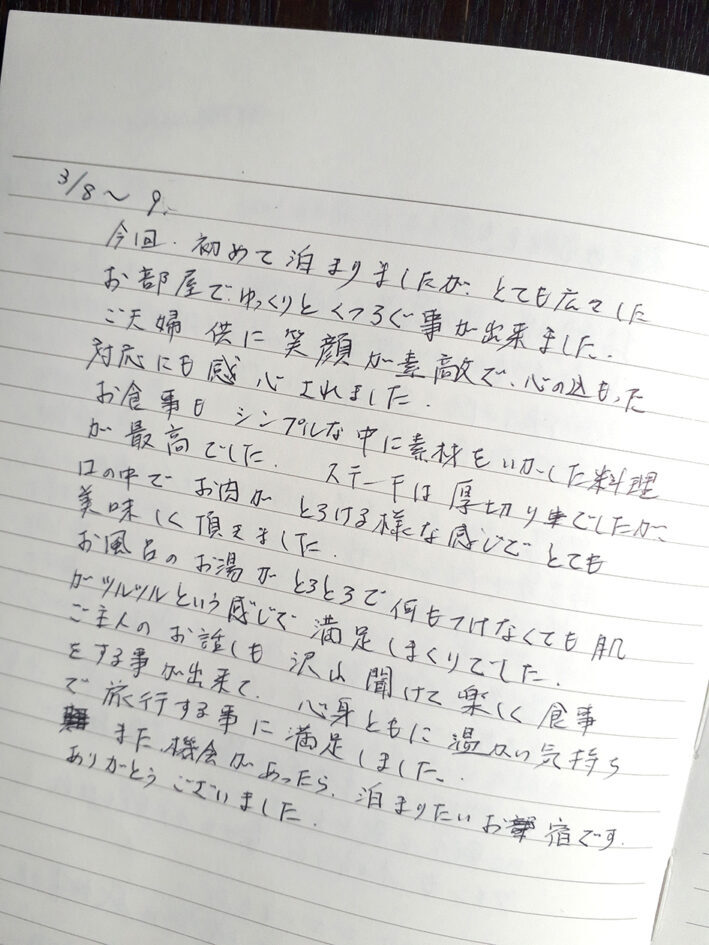 3/8〜9.
今回、初めて泊まりましたが、とても広くて
お部屋でゆっくりとくつろぐ事が出来ました.
ご夫婦供に笑顔が素敵で、心の込もった
対応にも感心されました.
お食事も シンプルな中に素材をいかした料理
が最高でした. ステーキは厚切りでしたが、
口の中で お肉が とろける様な感じで とても
美味しく頂きました.
お風呂のお湯が とろとろで 何もつけなくても肌
がツルツルという感じで 満足しまくりでした.
ご主人のお話しも 沢山 聞けて 楽しく 食事
をする事が出来て、心身ともに 温かい気持ち
で旅行する事に満足しました.
また機会があったら、泊まりたいお宿です.
ありがとうございました.